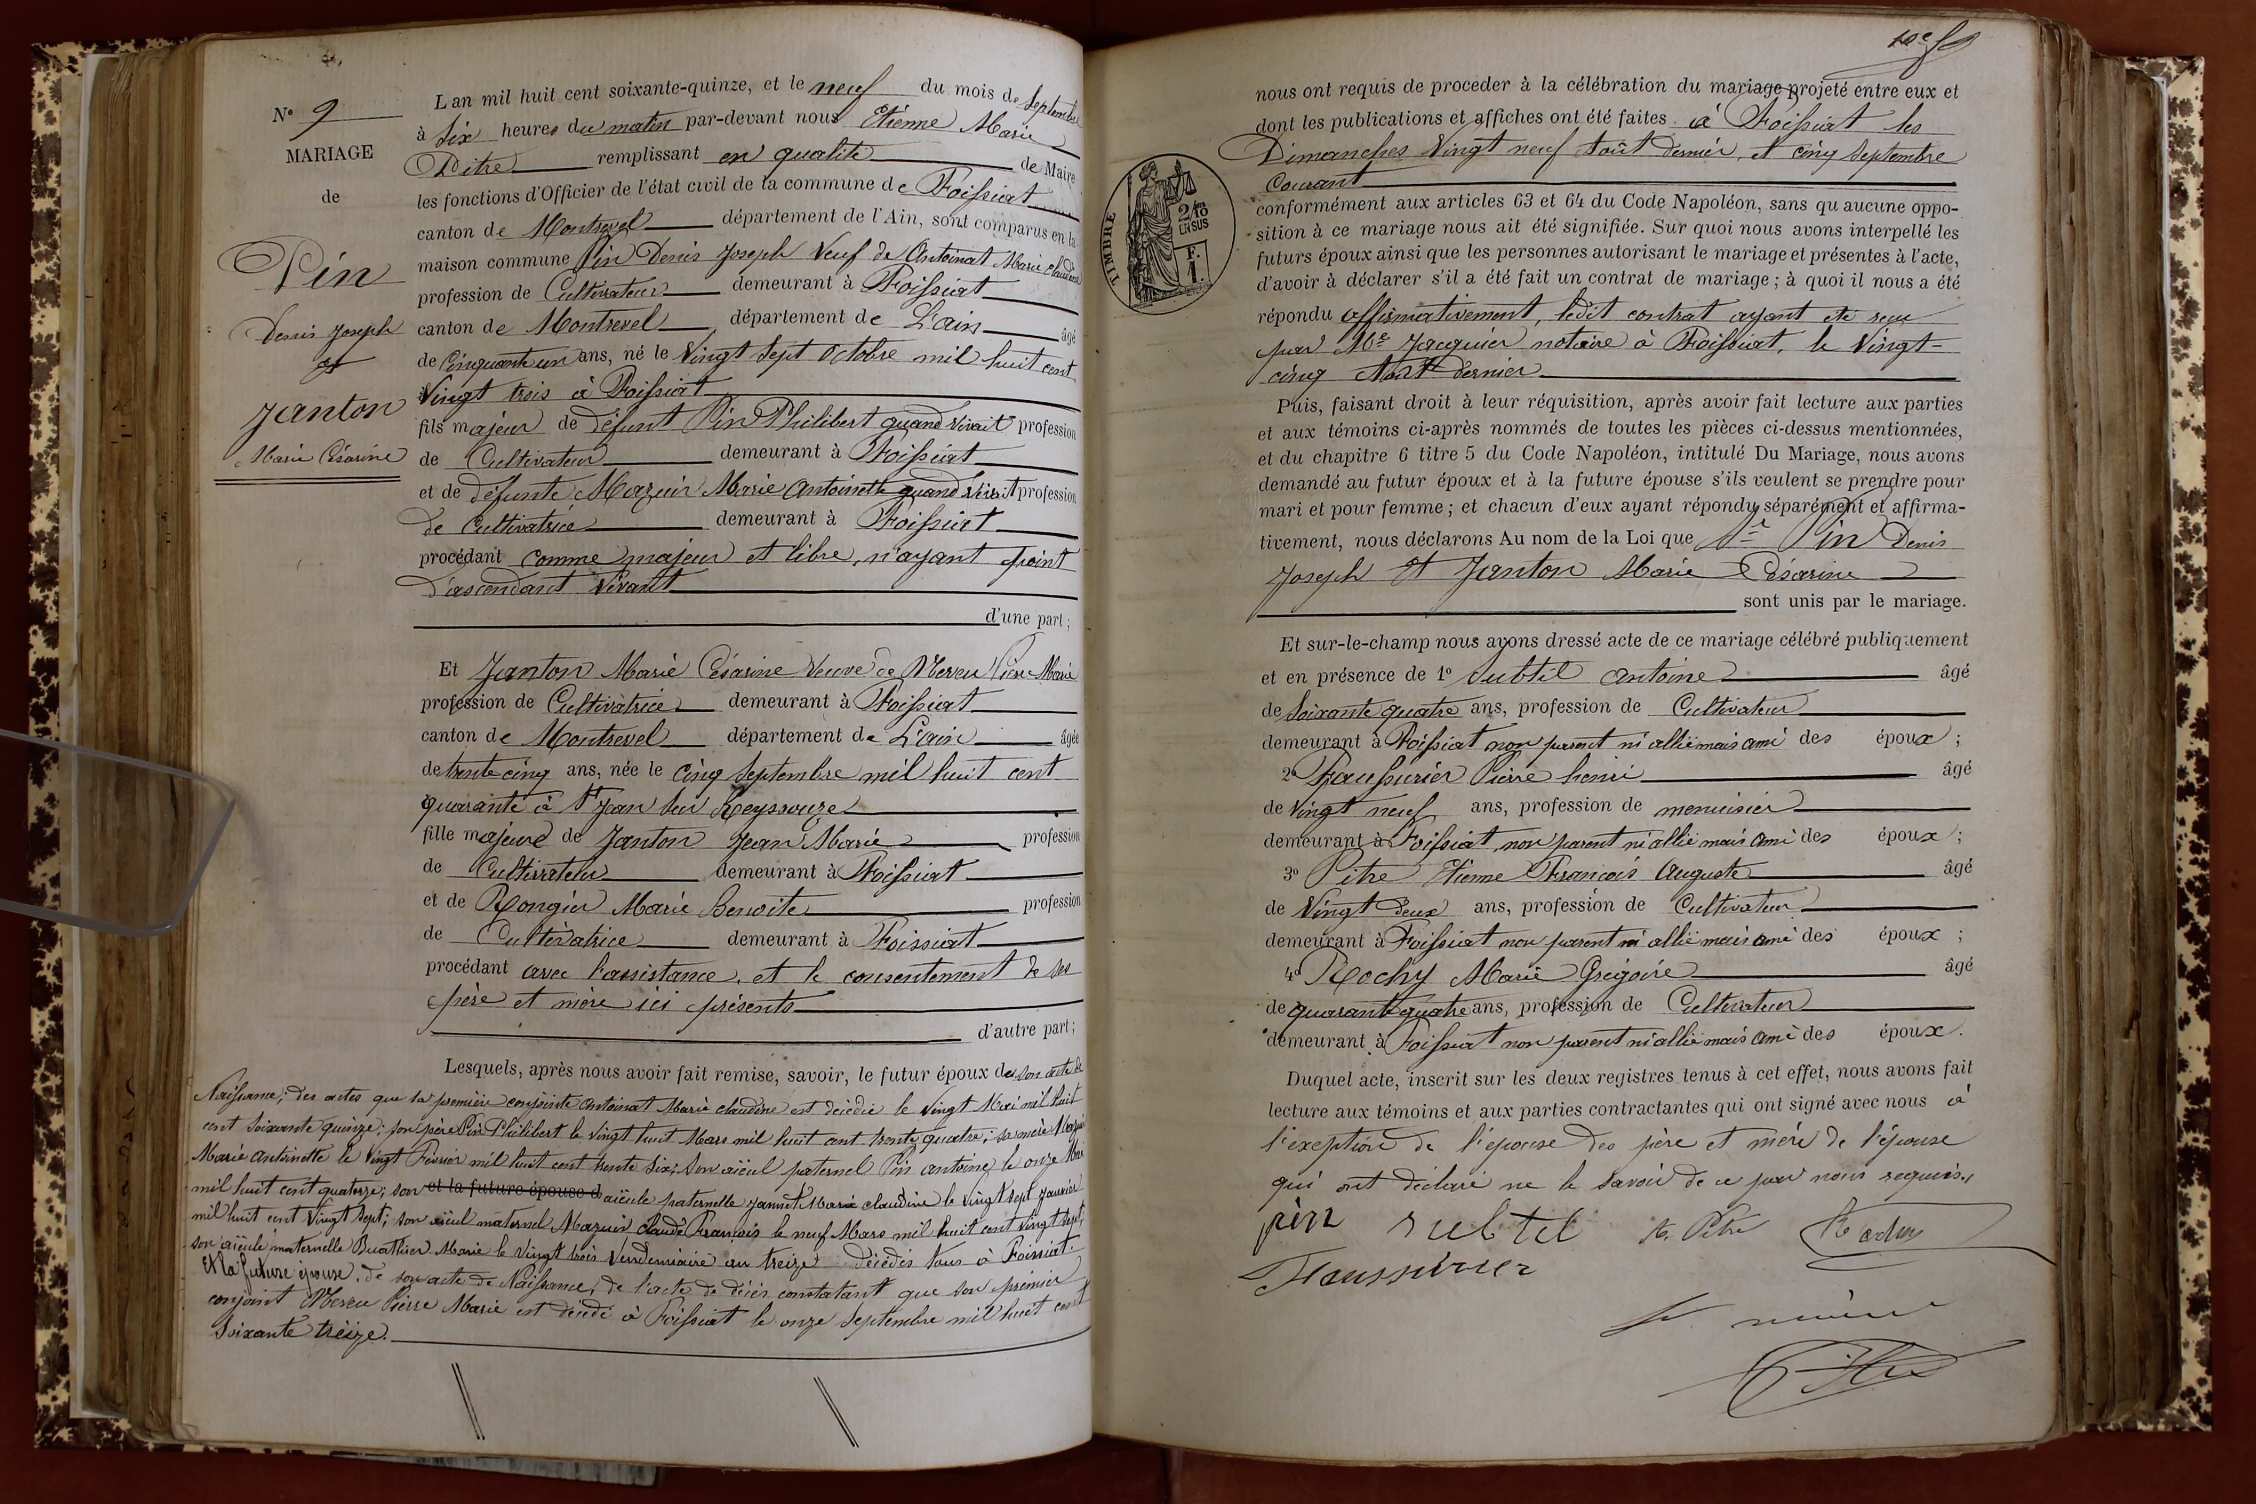 Nº 9
MARIAGE
de
Pin
Denis Joseph
et
Janton
Marie Césarine
L'an mil huit cent soixante-quinze, et le neuf du mois de Septembre
à Six heures du matin par-devant nous Etienne Marie
Pitre remplissant en qualité de Maire
les fonctions d'Officier de l'état civil de la commune de Foissiat
canton de Montrevel département de l'Ain, sont comparus en la
maison commune Pin Denis Joseph Veuf de Antoinat Marie Claudine
profession de Cultivateur demeurant à Foissiat
canton de Montrevel département de L'ain âgé
de Cinquante un ans, né le Vingt Sept Octobre mil huit cent
Vingt trois à Foissiat
fils majeur de défunt Pin Philibert quand vivait profession
de Cultivateur demeurant à Foissiat
et de défunte Mazuir Marie Antoinette quand vivait profession
de Cultivatrice demeurant à Foissiat
procédant comme majeur et libre, n'ayant point
d'ascendant vivant
d'une part;
Et Janton Marie Césarine Veuve de Merveu Pierre Marie
profession de Cultivatrice demeurant à Foissiat
canton de Montrevel département de L'ain âgée
de trente cinq ans, née le Cinq Septembre mil huit cent
quarante à St Jean sur Reyssouze
fille majeure de Janton Jean Marie profession
de Cultivateur demeurant à Foissiat
et de Rongier Marie Benoite profession
de Cultivatrice demeurant à Foissiat
procédant avec l'assistance, et le consentement de ses
père et mère ici présents
d'autre part;
Lesquels, après nous avoir fait remise, savoir, le futur époux de son acte de
Naissance; des actes que sa première conjointe Antoinat Marie Claudine est décédée le Vingt Mai mil huit
cent Soixante quinze; son père Pin Philibert le Vingt huit Mars mil huit cent trente quatre; sa mère Mazuir
Marie Antoinette le Vingt Février mil huit cent trente Six; Son aïeul paternel Pin Antoine le onze Mai
mil huit cent quatorze; son et la future épouse d aïeule paternelle Jannet Marie Claudine le Vingt Sept Janvier
mil huit cent Vingt Sept; son aïeul maternel Mazuir Claude François le neuf Mars mil huit cent Vingt Sept;
son aïeule maternelle Buathier Marie le Vingt trois Vendemiaire an treize décédés tous à Foissiat.
Et la future épouse, de son acte de Naissance, de l'acte de décès constatant que son premier
conjoint Merveu Pierre Marie est décédé à Foissiat le onze Septembre mil huit cent
Soixante treize.
nous ont requis de procéder à la célébration du mariage projeté entre eux et
dont les publications et affiches ont été faites à Foissiat les
Dimanches Vingt neuf Août dernier, et cinq Septembre
Courant
TIMBRE
2/10
EN SUS
F.
1.
conformément aux articles 63 et 64 du Code Napoléon, sans qu'aucune oppo-
sition à ce mariage nous ait été signifiée. Sur quoi nous avons interpellé les
futurs époux ainsi que les personnes autorisant le mariage et présentes à l'acte,
d'avoir à déclarer s'il a été fait un contrat de mariage; à quoi il nous a été
répondu affirmativement, ledit contrat ayant été reçu
par Me Jacquier notaire à Foissiat, le Vingt-
cinq Août dernier
Puis, faisant droit à leur réquisition, après avoir fait lecture aux parties
et aux témoins ci-après nommés de toutes les pièces ci-dessus mentionnées,
et du chapitre 6 titre 5 du Code Napoléon, intitulé Du Mariage, nous avons
demandé au futur époux et à la future épouse s'ils veulent se prendre pour
mari et pour femme; et chacun d'eux ayant répondu séparément et affirma-
tivement, nous déclarons Au nom de la Loi que Pin Denis
Joseph Et Janton Marie Césarine
sont unis par le mariage.
Et sur-le-champ nous avons dressé acte de ce mariage célébré publiquement
et en présence de 1º Subtil Antoine âgé
de Soixante quatre ans, profession de Cultivateur
demeurant à Foissiat non parent ni allié mais ami des époux;
2º Faussurier Pierre henri âgé
de Vingt neuf ans, profession de menuisier
demeurant à Foissiat non parent ni allié mais ami des époux;
3º Pitre Etienne François Auguste âgé
de Vingt deux ans, profession de Cultivateur
demeurant à Foissiat non parent ni allié mais ami des époux;
4º Rochy Marie Grégoire âgé
de quarante quatre ans, profession de Cultivateur
demeurant à Foissiat non parent ni allié mais ami des époux.
Duquel acte, inscrit sur les deux registres tenus à cet effet, nous avons fait
lecture aux témoins et aux parties contractantes qui ont signé avec nous à
l'exeption de l'épouse des père et mère de l'épouse
qui ont déclaré ne le savoir de ce par nous requis.
pin subtil Pitre
Faussurier
Le maire
Pitre